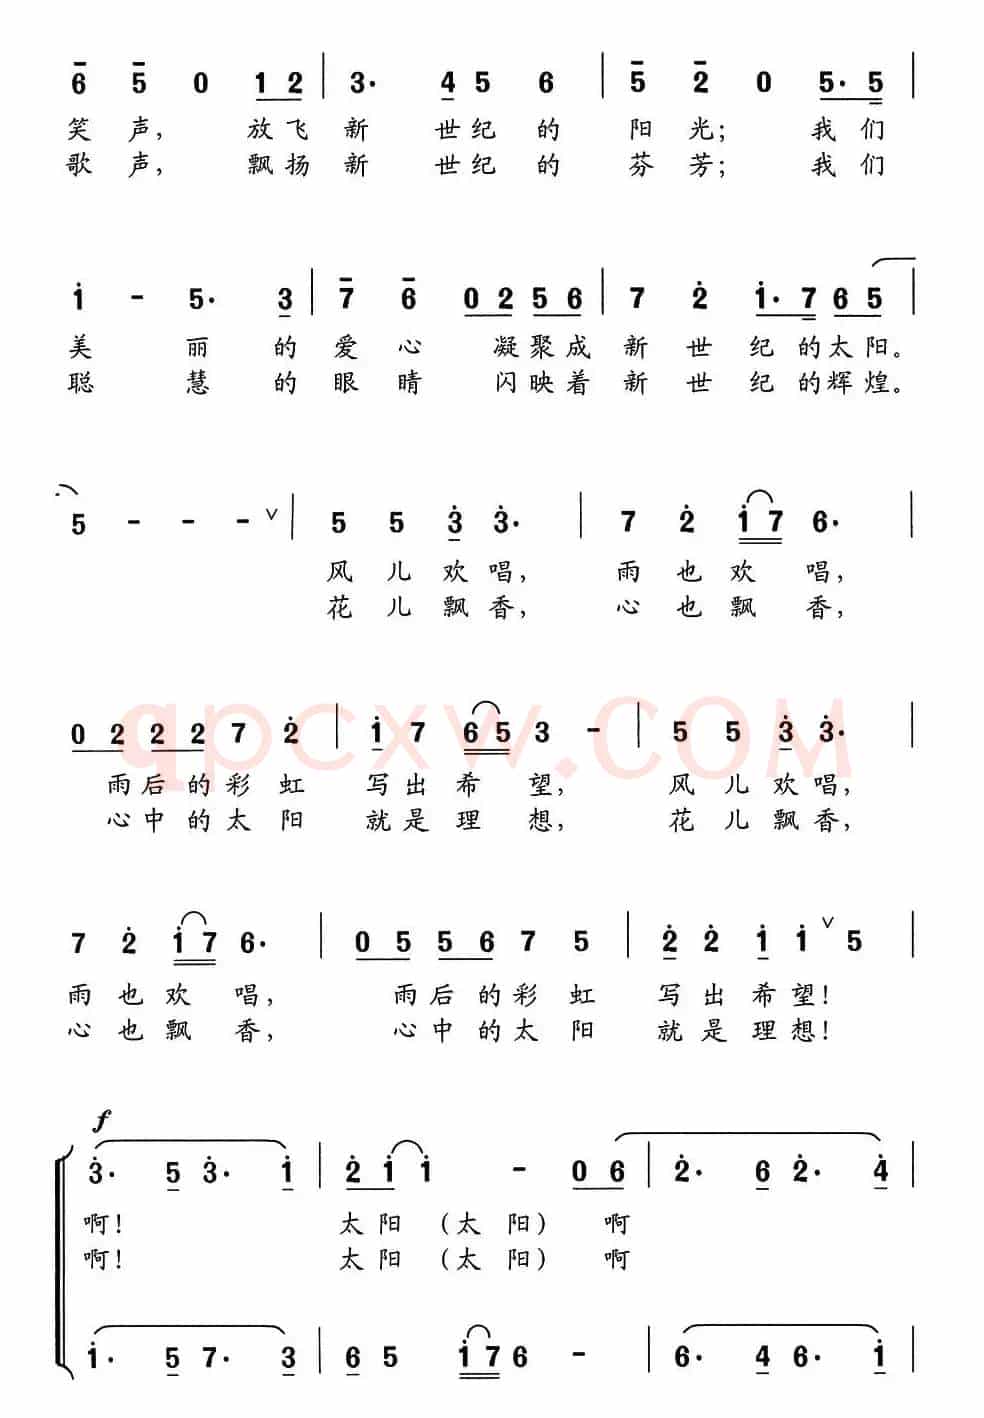 6 5 0 1 2 | 3· 4 5 6 | 5 2 0 5· 5 |
笑 声， 放 飞 新 世 纪 的 阳 光； 我 们
歌 声， 飘 扬 新 世 纪 的 芬 芳； 我 们
1 - 5· 3 | 7 6 0 2 5 6 | 7 2 1· 7 6 5 |
美 丽 的 爱 心 凝 聚 成 新 世 纪 的 太 阳。
聪 慧 的 眼 睛 闪 映 着 新 世 纪 的 辉 煌。
5 - - - ∨ | 5 5 3 3· | 7 2 1 7 6· |
风 儿 欢 唱， 雨 也 欢 唱，
花 儿 飘 香， 心 也 飘 香，
0 2 2 2 7 2 | 1 7 6 5 3 - | 5 5 3 3· |
qpcxw.COM
雨 后 的 彩 虹 写 出 希 望， 风 儿 欢 唱，
心 中 的 太 阳 就 是 理 想， 花 儿 飘 香，
7 2 1 7 6· | 0 5 5 6 7 5 | 2 2 1 1 ∨ 5 |
雨 也 欢 唱， 雨 后 的 彩 虹 写 出 希 望！
心 也 飘 香， 心 中 的 太 阳 就 是 理 想！
f
3· 5 3· 1 | 2 1 1 - 0 6 | 2· 6 2· 4 |
啊！ 太 阳 （太 阳） 啊
啊！ 太 阳 （太 阳） 啊
1· 5 7· 3 | 6 5 1 7 6 - | 6· 4 6· 1 |